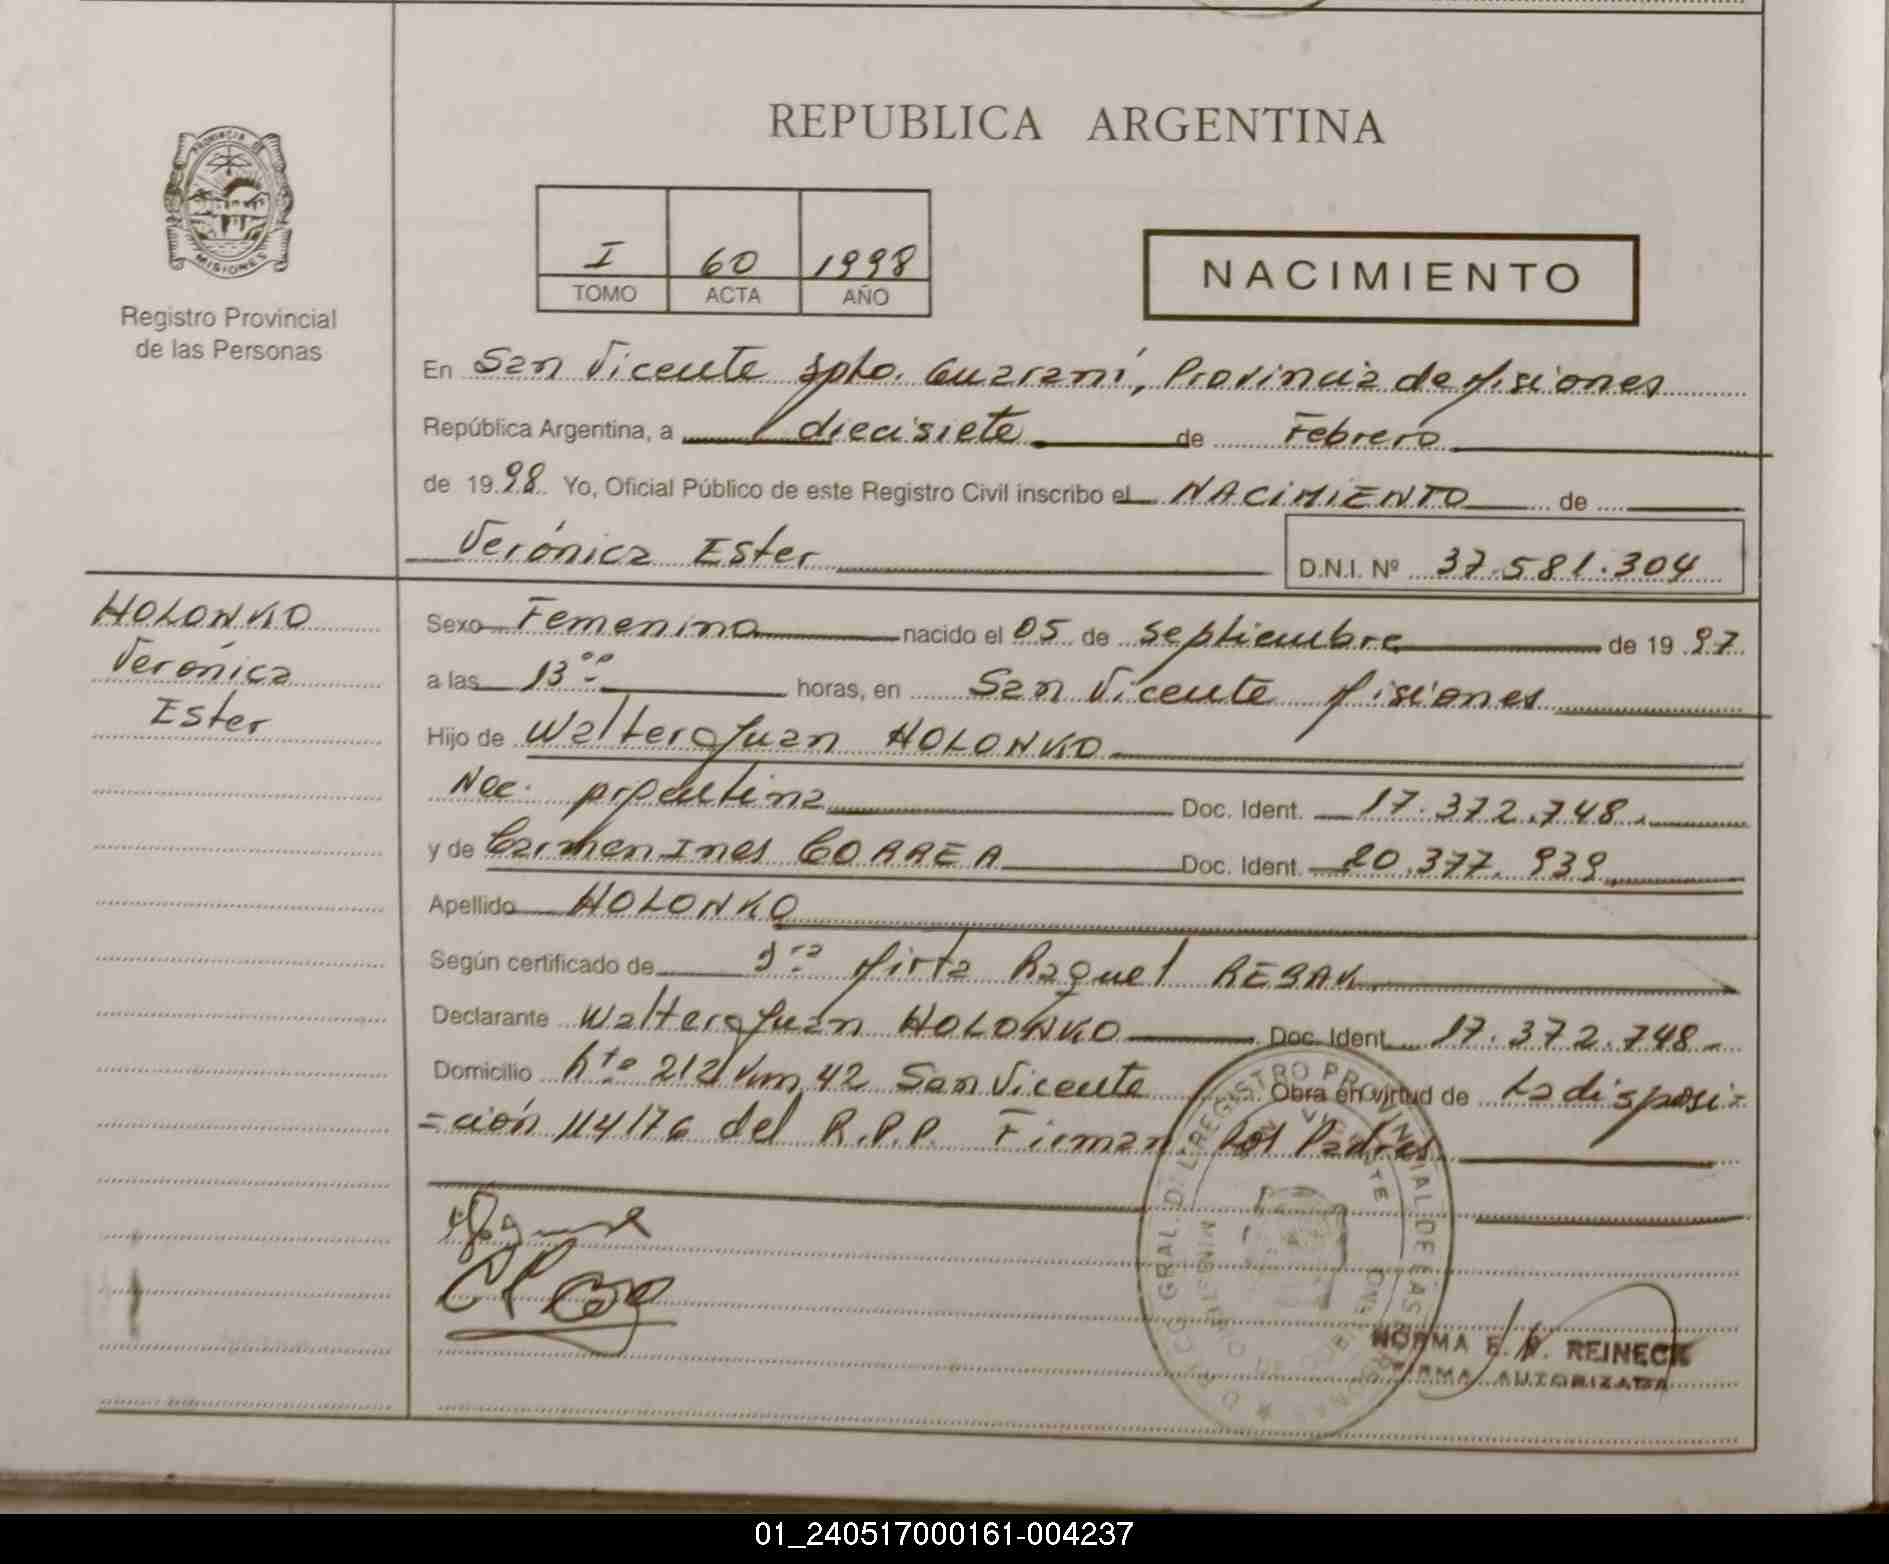 REPUBLICA ARGENTINA
PROVINCIA DE
MISIONES
Registro Provincial
de las Personas
I 60 1998
TOMO ACTA AÑO
NACIMIENTO
En San Vicente Dpto. Guaraní, Provincia de Misiones
República Argentina, a diecisiete de Febrero
de 1998 Yo, Oficial Público de este Registro Civil inscribo el NACIMIENTO de
Verónica Ester D.N.I. Nº 37.581.304
HOLONKO
Verónica
Ester
Sexo Femenino nacido el 05 de septiembre de 1997
a las 13:00 horas, en San Vicente Misiones
Hijo de Walter Juan HOLONKO
Nac. Argentina Doc. Ident. 17.372.748.
y de Carmen Ines CORREA Doc. Ident. 20.377.939
Apellido HOLONKO
Según certificado de Dra Mirta Raquel
Declarante Walter Juan HOLONKO Doc. Ident. 17.372.748-
Domicilio Rta 212 Km 42 San Vicente Obra en virtud de La disposi=
=ción 114/76 del R.P.P. Firman Los Padres
NORMA E. N. REINECK
FIRMA AUTORIZADA
01_240517000161-004237